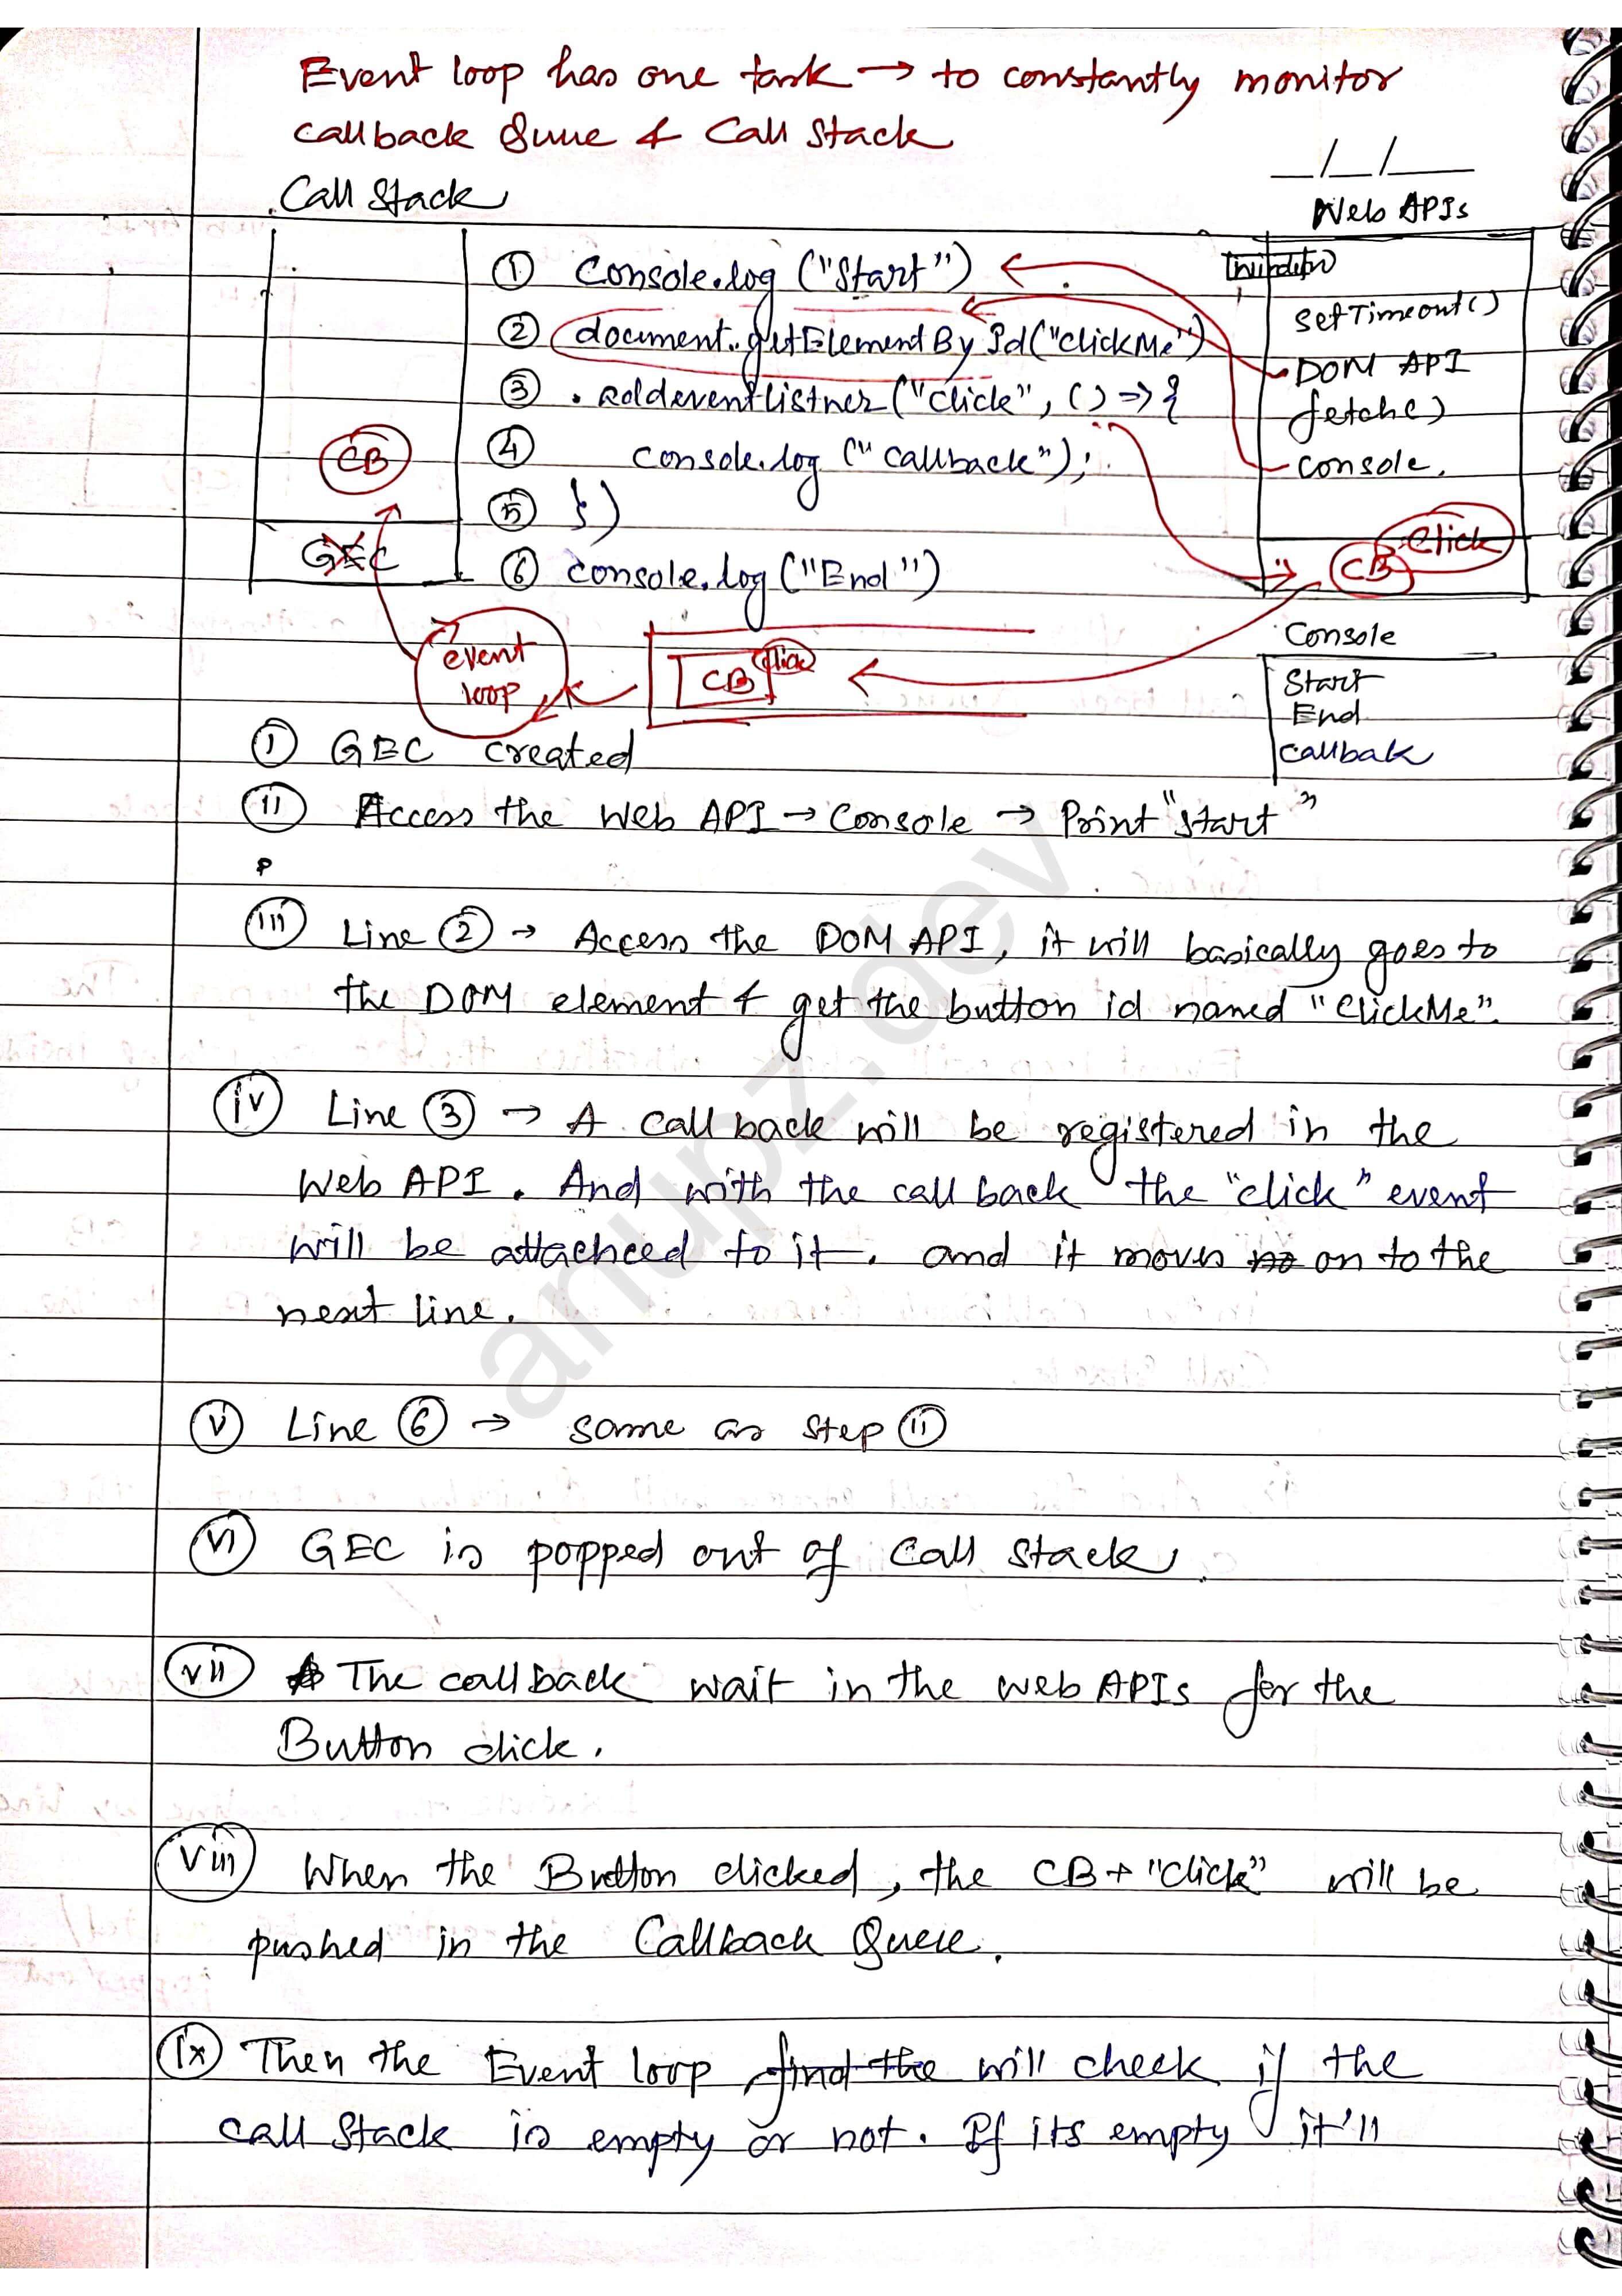 Event loop has one task → to constantly monitor
callback Queue & Call Stack
__/__/____
Call Stack
Web APIs
① Console.log ("Start")
② document.getElementById("clickMe")
③ .addeventlistner("click", () => {
④ console.log ("callback");
⑤ })
⑥ console.log ("End")
CB
GEC
window
setTimeout()
DOM API
fetch()
console.
CB click
event
loop
CB click
Console
Start
End
Callbak
ⓘ GEC created
ii Access the Web API → Console → Print "start"
iii Line ② → Access the DOM API, it will basically goes to
the DOM element & get the button id named "ClickMe".
iv Line ③ → A callback will be registered in the
Web API. And with the call back the "click" event
will be attacheed to it. and it moves on to the
next line.
v Line ⑥ → same as step ii
vi GEC is popped out of Call Stack.
vii The callback wait in the web APIs for the
Button click.
viii When the Button clicked, the CB + "click" will be
pushed in the Callback Queue.
ix Then the Event loop find the will check if the
call Stack is empty or not. If its empty it'll
anupz.dev